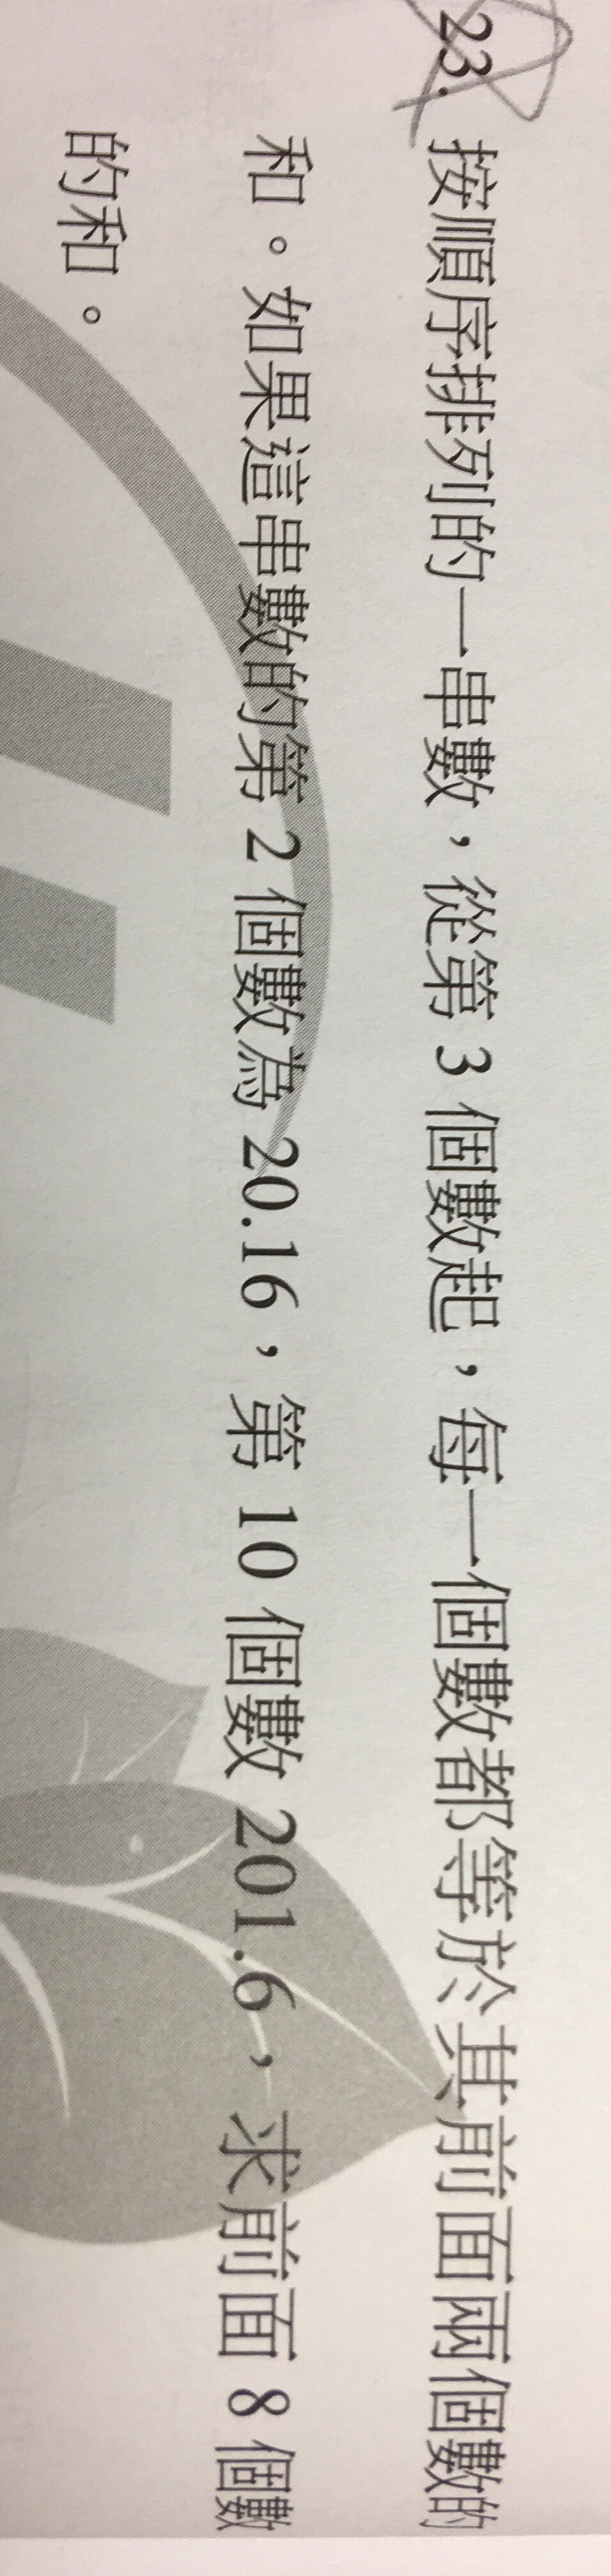 23. 按順序排列的一串數，從第 3 個數起，每一個數都等於其前面兩個數的
和。如果這串數的第 2 個數為 20.16，第 10 個數 201.6，求前面 8 個數
的和。